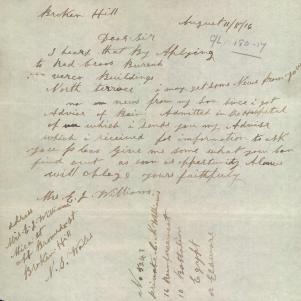 Broken Hill
August 11/8/16
Dear Sir
I heard that By Applying
to Red cross Bureau
verco Buildings
North terrace i may get some News from you
no news from my Son since i got
Advice of Being Admitted in the Hospital
of which i send you my Advise
which i received for information to ask
you Please Give me some what you can
find out as soon as oppertunity Alows
will oblige yours faithfully
Mrs E. J. Williams
adress
Mrs E. J. Williams
Mica st
off Bromide st
Broken Hill
N. S. Wales
Williams
16 Reinforcement
10 Battalion
Egypt
or Elsewere